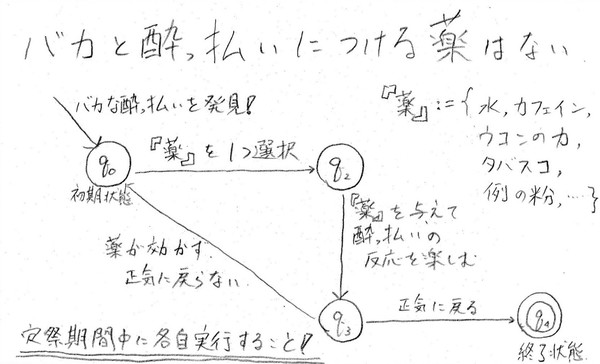 バカと酔っ払いにつける薬はない
バカな酔っ払いを発見!
『薬』:={水,カフェイン,
ウコンの力,
タバスコ,
例の粉,…}
q₀
初期状態
『薬』を1つ選択
q₂
『薬』を与えて
酔っ払いの
反応を楽しむ
薬が効かず
正気に戻らない
q₃
正気に戻る
q₄
終了状態
定祭期間中に各自実行すること!